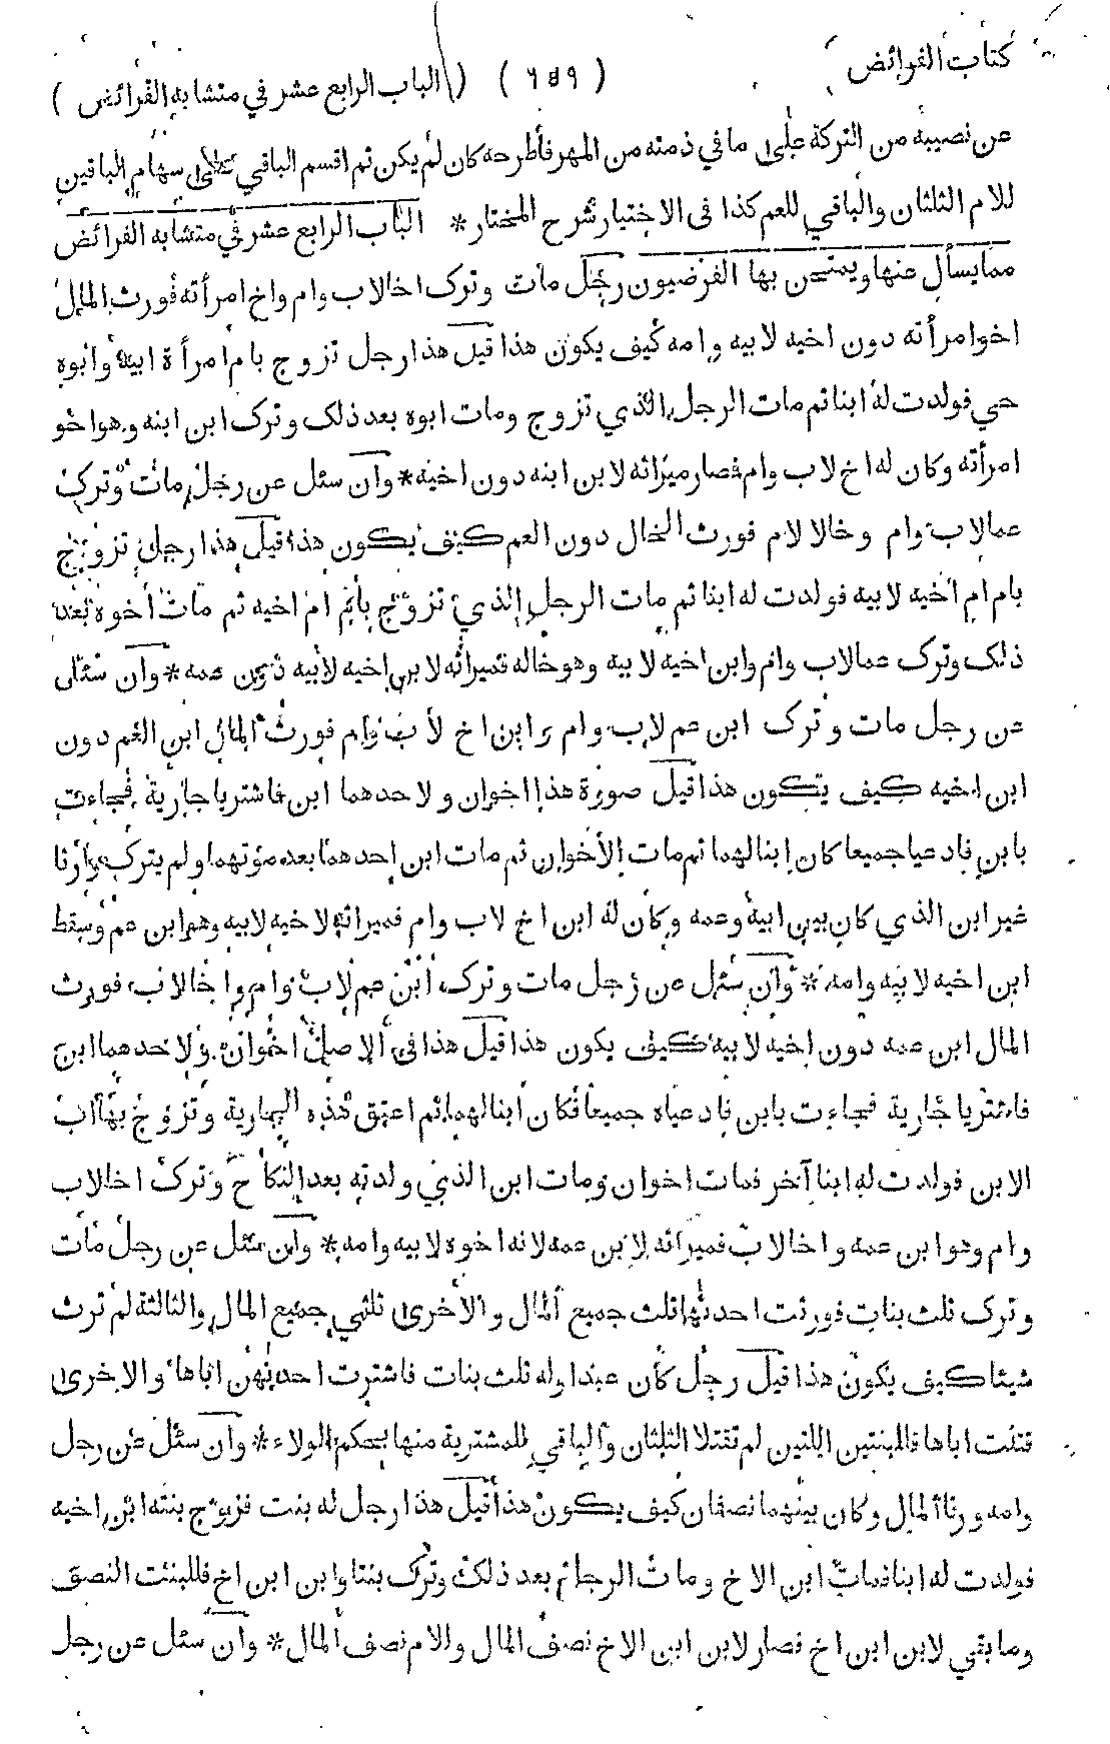 كتاب الفرائض
( ٦٥٩ ) ( الباب الرابع عشر في متشابه الفرائض )
عن نصيبه من التركة على ما في ذمته من المهر فأطرحه كان لم يكن ثم اقسم الباقي على سهام الباقين
للام الثلثان والباقي للعم كذا فى الاختيار شرح المختار * الباب الرابع عشر في متشابه الفرائض
مما يسأل عنها ويمتحن بها الفرضيون رجل مات وترك اخا لاب وام واخ امرأته فورث المال
اخو امرأته دون اخيه لابيه وامه كيف يكون هذا قيل هذا رجل تزوج بام امرأة ابيه وابوه
حي فولدت له ابنا ثم مات الرجل الذي تزوج ومات ابوه بعد ذلك وترك ابن ابنه وهو اخو
امرأته وكان له اخ لاب وام فصار ميراثه لابن ابنه دون اخيه * وان سئل عن رجل مات وترك
عما لاب وام وخالا لام فورث الخال دون العم كيف يكون هذا قيل هذا رجل تزوج
بام ام اخيه لابيه فولدت له ابنا ثم مات الرجل الذي تزوج بام ام اخيه ثم مات اخوه بعد
ذلك وترك عما لاب وام وابن اخيه لابيه وهو خاله فميراثه لابن اخيه لابيه دون عمه * وان سئل
عن رجل مات وترك ابن عم لاب وام وابن اخ لاب وام فورث المال ابن العم دون
ابن اخيه كيف يكون هذا قيل صورة هذا اخوان ولاحدهما ابن فاشتريا جارية فجاءت
بابن فادعيا جميعا كان ابنا لهما ثم مات الأخوان ثم مات ابن احدهما بعد موتهما ولم يترك وارثا
غير ابن الذي كان بين ابيه وعمه وكان له ابن اخ لاب وام فميراثه لاخيه لابيه وهو ابن عم وسقط
ابن اخيه لابيه وامه * وان سئل عن رجل مات وترك ابن عم لاب وام واخا لاب فورث
المال ابن عمه دون اخيه لابيه كيف يكون هذا قيل هذا فى الاصل اخوان ولاحدهما ابن
فاشتريا جارية فجاءت بابن فادعياه جميعا فكان ابنا لهما ثم اعتق هذه الجارية وتزوج بها اب
الابن فولدت له ابنا آخر فمات اخوان ومات ابن الذي ولدته بعد النكاح وترك اخا لاب
وام وهو ابن عمه واخا لاب فميراثه لابن عمه لانه اخوه لابيه وامه * وان سئل عن رجل مات
وترك ثلث بنات فورثت احدٮها ثلث جميع المال والأخرى ثلثي جميع المال والثالثة لم ترث
شيئا كيف يكون هذا قيل رجل كان عبدا وله ثلث بنات فاشترت احديهن اباها والاخرى
قتلت اباها فللبنتين اللتين لم تقتلا الثلثان والباقي للمشترية منها بحكم الولاء * وان سئل عن رجل
وامه ورثا المال وكان بينهما نصفان كيف يكون هذا قيل هذا رجل له بنت فزوج بنته ابن اخيه
فولدت له ابنا فمات ابن الاخ ومات الرجل ثم بعد ذلك وترك بنتا وابن ابن اخ فللبنت النصف
وما بقي لابن ابن اخ فصار لابن ابن الاخ نصف المال والام نصف المال * وان سئل عن رجل